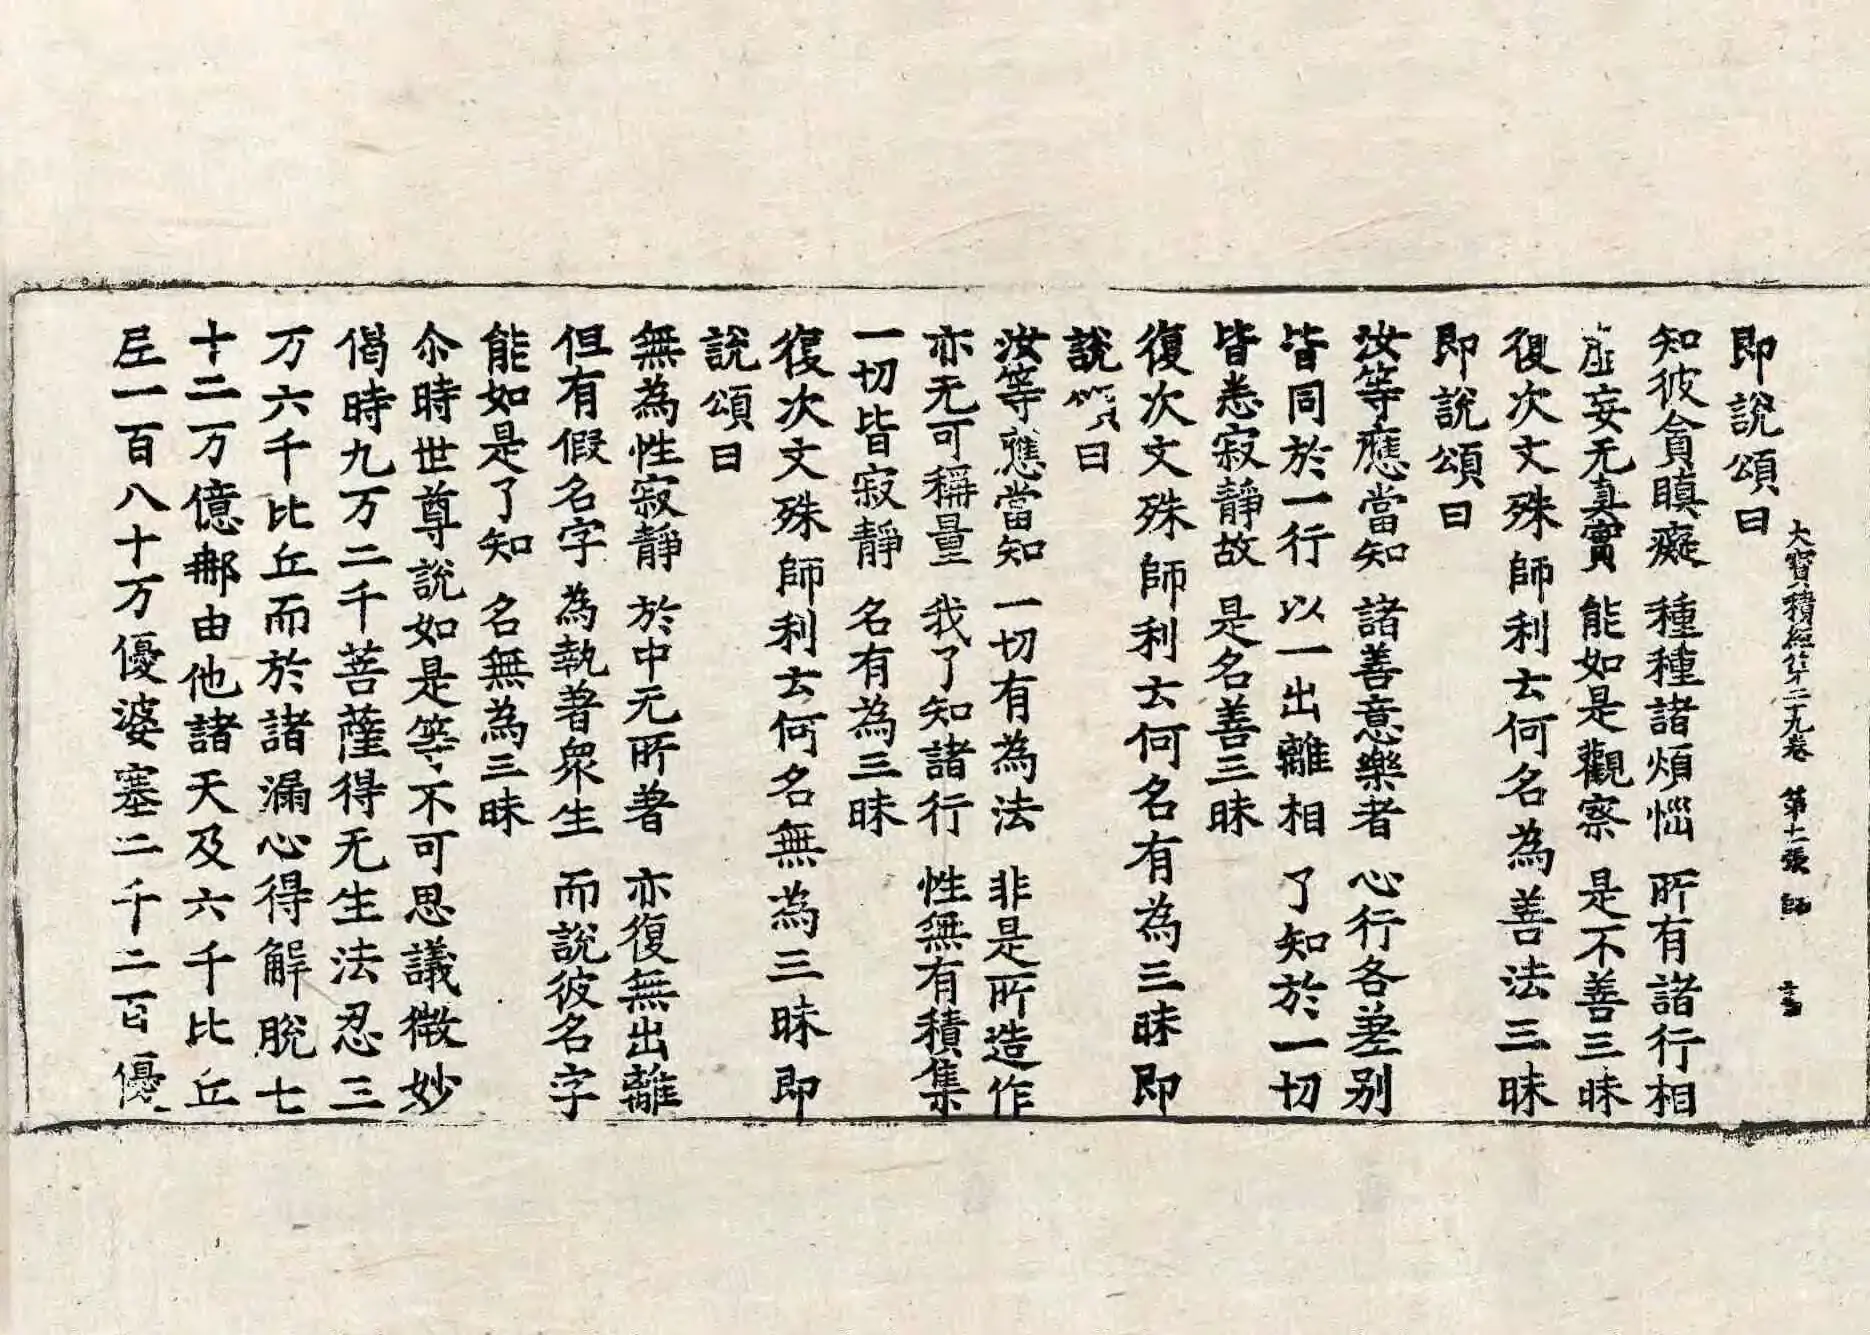 大寶積經第二十九卷 第十二張 師
即說頌曰
知彼貪瞋癡 種種諸煩惱 所有諸行相
虛妄无真實 能如是觀察 是不善三昧
復次文殊師利云何名為善法三昧
即說頌曰
汝等應當知 諸善意樂者 心行各差別
皆同於一行 以一出離相 了知於一切
皆悉寂靜故 是名善三昧
復次文殊師利云何名有為三昧即
說頌曰
汝等應當知 一切有為法 非是所造作
亦无可稱量 我了知諸行 性無有積集
一切皆寂靜 名有為三昧
復次文殊師利云何名無為三昧即
說頌曰
無為性寂靜 於中无所著 亦復無出離
但有假名字 為執著眾生 而說彼名字
能如是了知 名無為三昧
尒時世尊說如是等不可思議微妙
偈時九万二千菩薩得无生法忍三
万六千比丘而於諸漏心得解脫七
十二万億那由他諸天及六千比丘
尼一百八十万優婆塞二千二百優